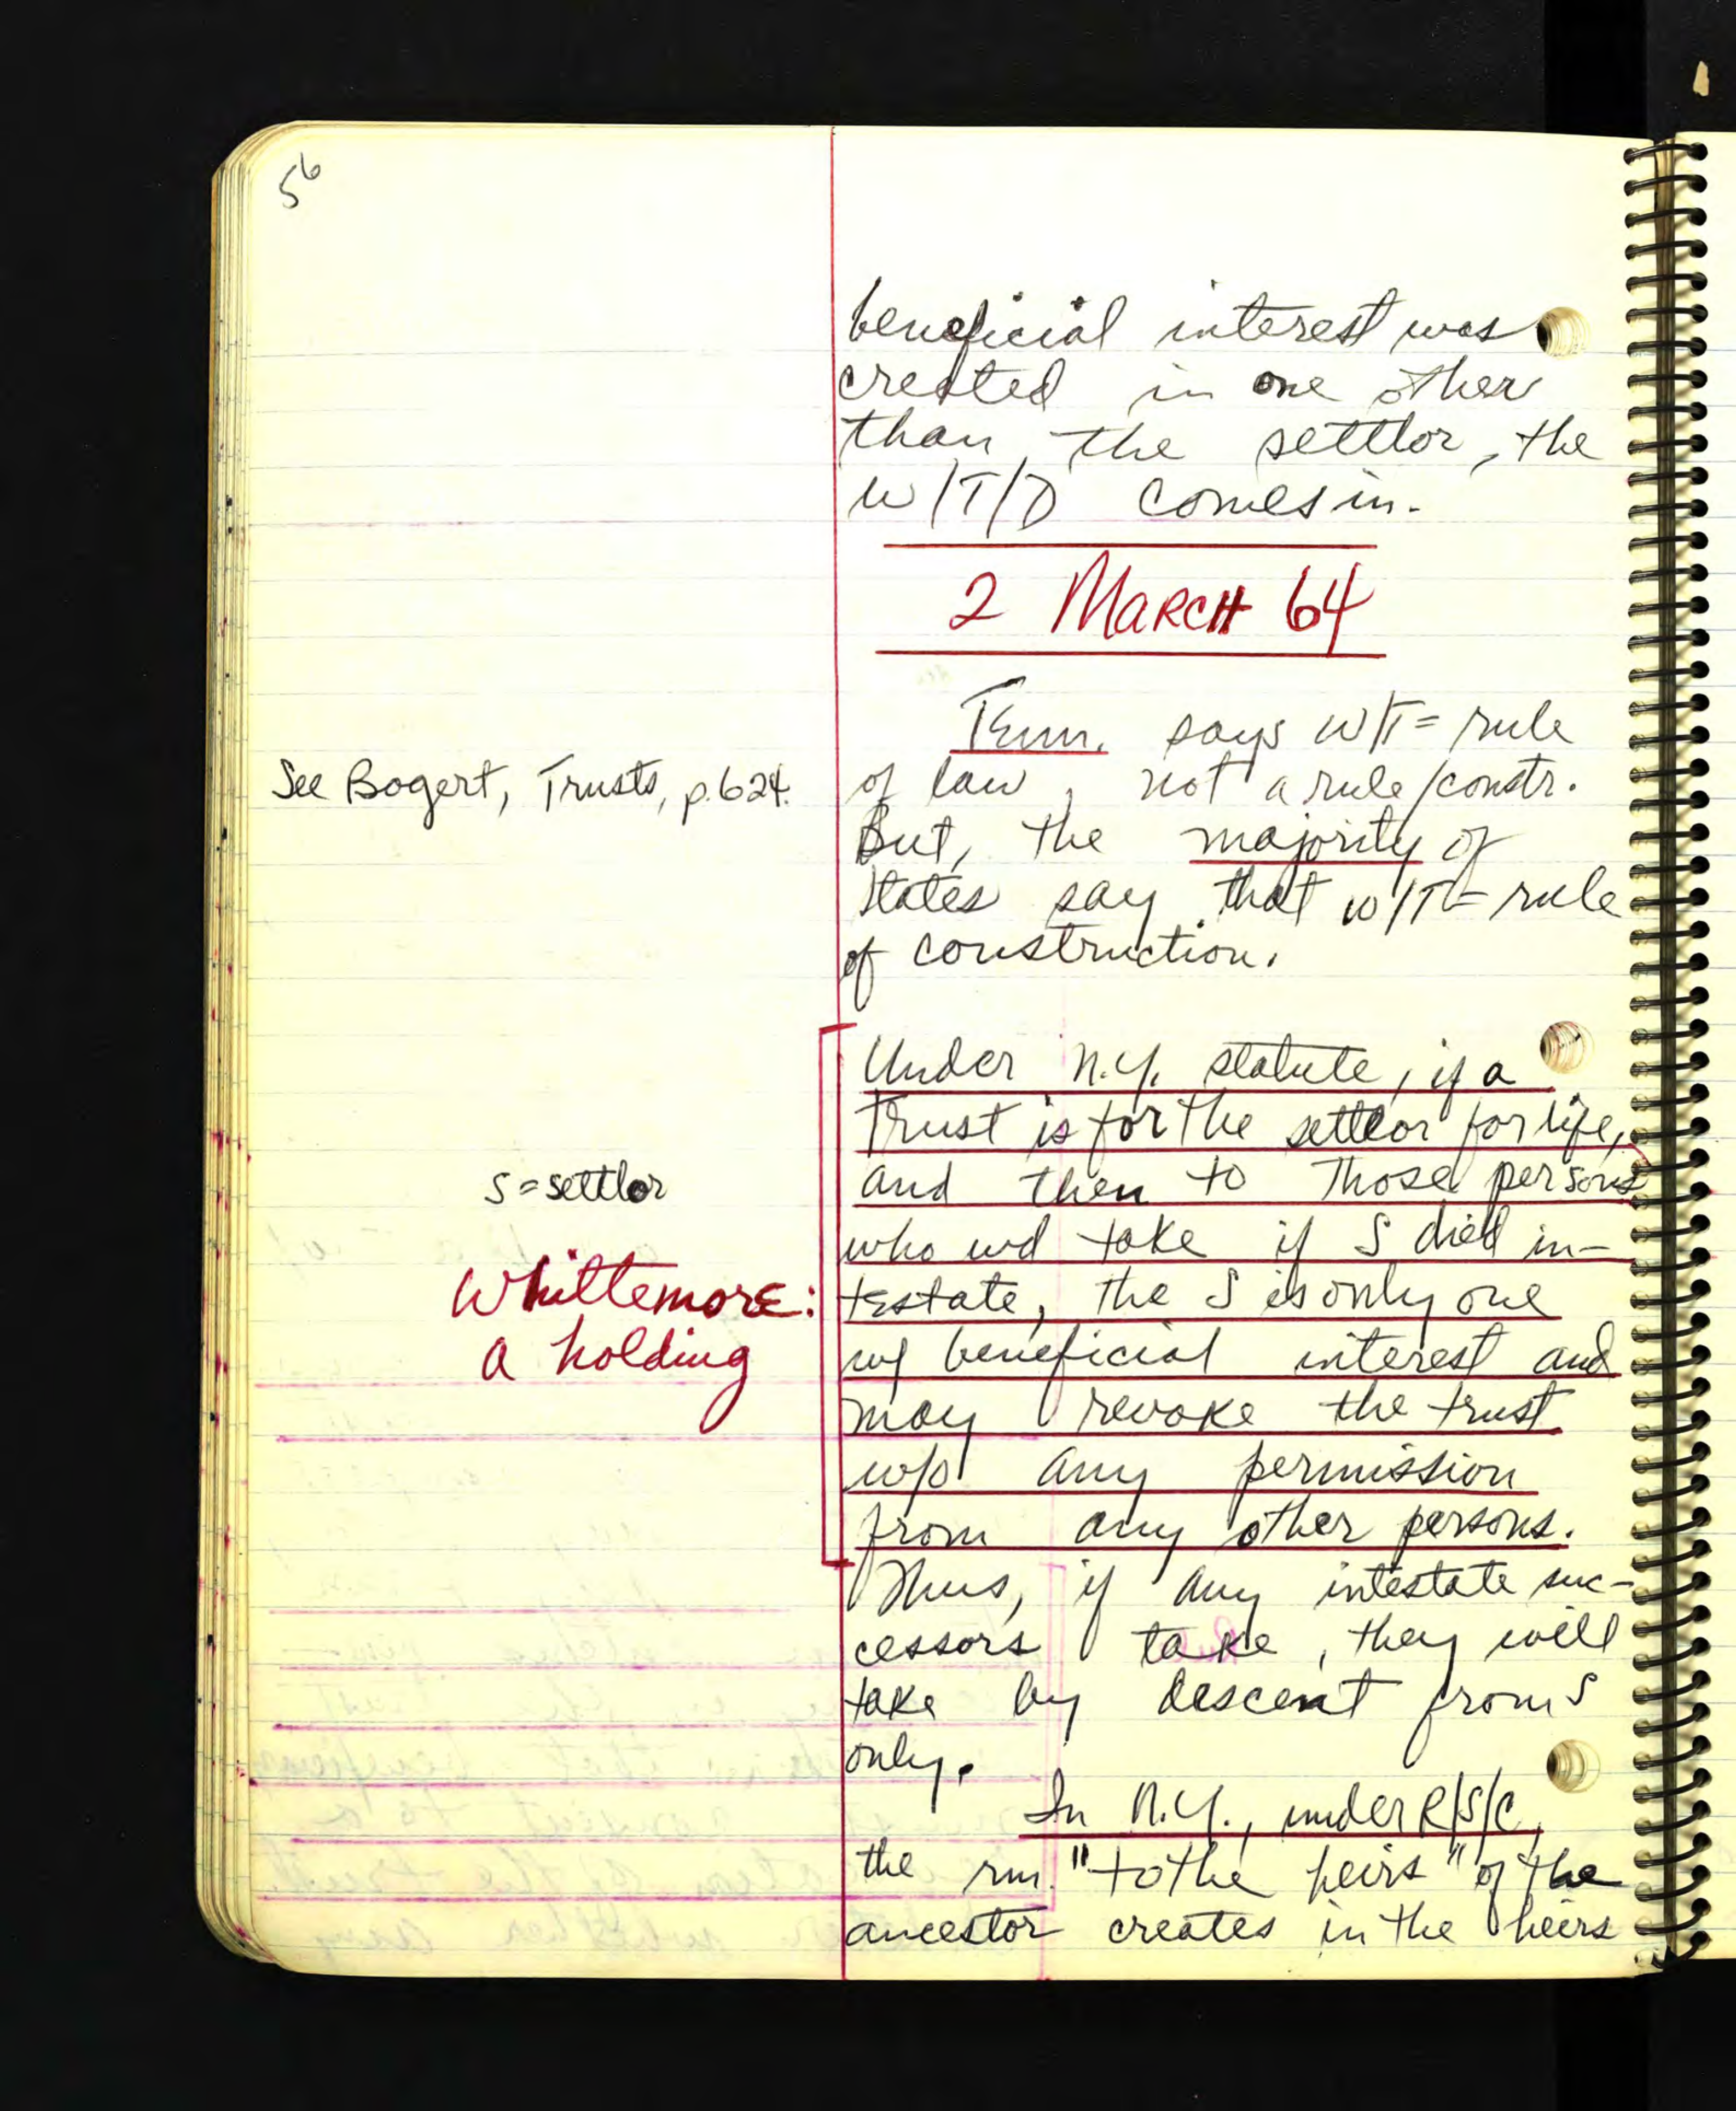 56
beneficial interest was
created in one other
than the settlor, the
W/T/D comes in.
2 MARCH 64
Tenn. says W/T = rule
See Bogert, Trusts, p. 624.
of law, not a rule/constr.
But, the majority of
states say that W/T = rule
of construction.
Under N.Y. statute, if a
trust is for the settlor for life,
and then to those persons
S = settlor
who wd take if S died in-
Whittemore:
a holding
testate, the S is only one
w/ beneficial interest and
may revoke the trust
w/o any permission
from any other persons.
Thus, if any intestate suc-
cessors take, they will
take by descent from S
only.
In N.Y., under R/S/C,
the rm. "to the heirs" of the
ancestor creates in the heirs